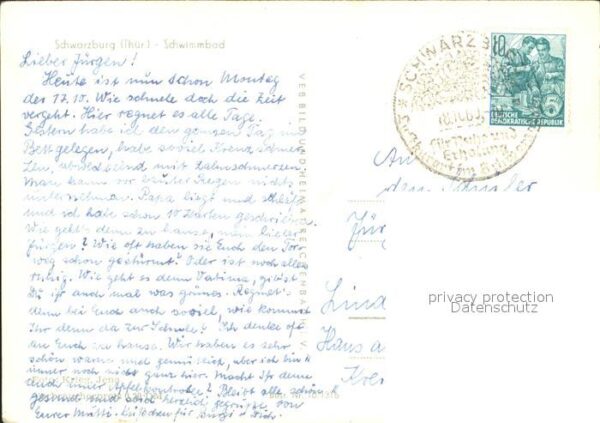 Schwarzburg (Thür.) - Schwimmbad
Lieber Jürgen!
Heute ist nun schon Montag
der 17.10. Wie schnell doch die Zeit
vergeht. Hier regnet es alle Tage.
Gestern habe ich den ganzen Tag im
Bett gelegen, habe soviel Kreuzschmer-
zen, abwechselnd mit Zahnschmerzen.
Man kann vor lauter Regen nichts
unternehmen. Papa liegt und schläft
und ich habe schon 10 Karten geschrieben.
Wie geht's denn zu hause, mein lieber
Jürgen? Wie oft haben sie Euch den Tor-
weg schon gestürmt? Oder ist noch alles
ruhig. Wie geht es denn
Du ihr auch mal was grünes. Regnet's
denn bei Euch auch soviel, wie kommt
Ihr denn da zur Schule? Ich denke oft
an Euch zu hause. Wir haben es sehr
schön warm und gemütlich, aber ich bin
immer noch nicht ganz hier. Macht Ihr denn
auch immer Apfelkontrolle? Bleibt alle schön
gesund und seid herzlich gegrüßt von
Eurer Mutti. Küßchen für und Dich.
VEB BILD UND HEIMAT REICHENBACH I. V.
SCHWARZBURG
Erholung
10
DEUTSCHE
DEMOKRATISCHE REPUBLIK
5
An
den Schüler
Jür
Lind
Haus a
Kre
privacy protection
Datenschutz